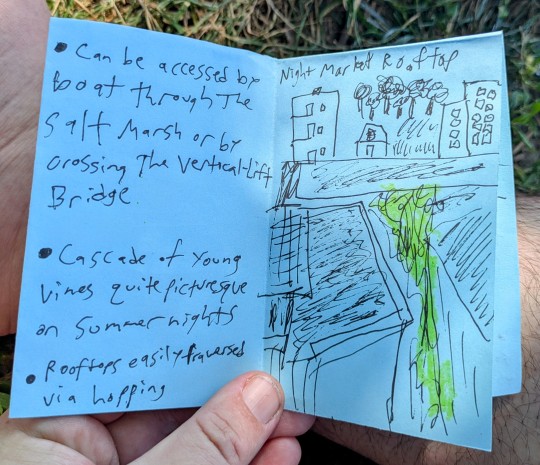 • Can be accessed by
Boat through the
Salt Marsh or by
crossing the Vertical-Lift
Bridge.
• Cascade of young
vines quite picturesque
on summer nights
• Rooftops easily traversed
via hopping
Night Market Rooftop